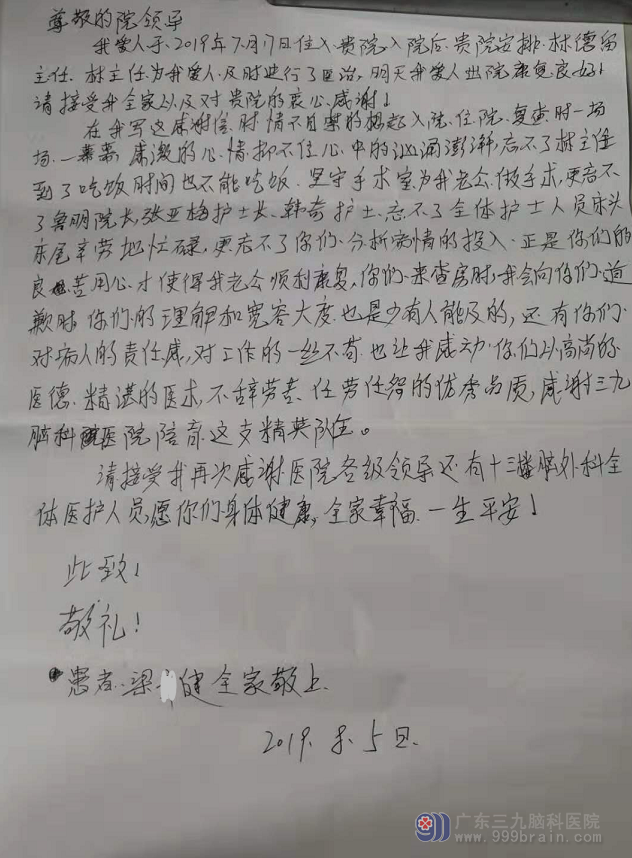 尊敬的院领导
我爱人于2019年7月17日住入贵院入院后.贵院安排.林德留
主任.林主任.为我爱人.及时进行了医治,明天我爱人出院康复良好!
请接受我全家以及对贵院的衷心感谢!
在我写这感谢信时情不自禁的想起入院.住院.复查时一场
场.一幕幕 感激的心情抑不住心中的汹涌澎湃,忘不了林主任
到了吃饭时间也不能吃饭.坚守手术室为我老公.做手术,更忘不
了鲁明院长,张亚梅护士长、韩奇护士.忘不了全体护士人员床头
床尾辛劳地忙碌,更忘不了你们.分析病情的投入.正是你们的
良苦用心.才使得我老公顺利康复,你们.来查房时,我会向你们.道
歉时 你们的理解和宽容大度.也是少有人能及的,还有你们
对病人的责任感,对工作的一丝不苟.也让我感动.你们以高尚的
医德.精湛的医术,不辞劳苦、任劳任怨的优秀品质,感谢三九
脑科医院培育这支精英队伍。
请接受我再次感谢医院各级领导还有十三楼脑外科全
体医护人员,愿你们.身体健康,全家幸福.一生平安!
此致!
敬礼!
患者.梁 健全家敬上.
2019.8.5日.
广东三九脑科医院
www.999brain.com